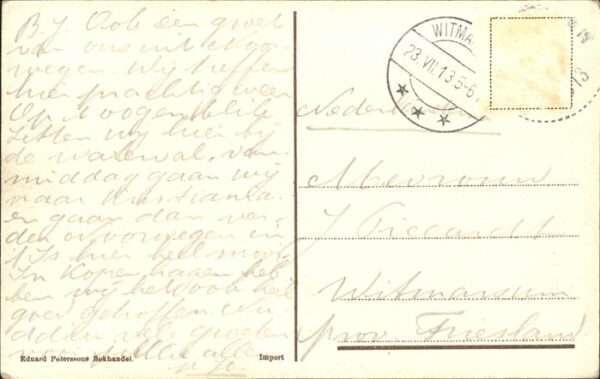 B.J. Ook een groet
van ons uit Noor
wegen. Wij treffen
hier prachtig weer
Op 't oogenblik
zitten wij hier bij
de waterval, van
middag gaan wij
naar Kristiania
en gaan dan ver
der Noorwegen in
't Is hier heel mooi
In Kopenhagen heb
ben wij het ook heel
goed getroffen. Nu
dan vele groeten
van allen
Eduard Peterssons Bokhandel.
Import
WITMA
23.VII.13 5-6
13
Nederland
Mevrouw
Witmarsum
prov. Friesland